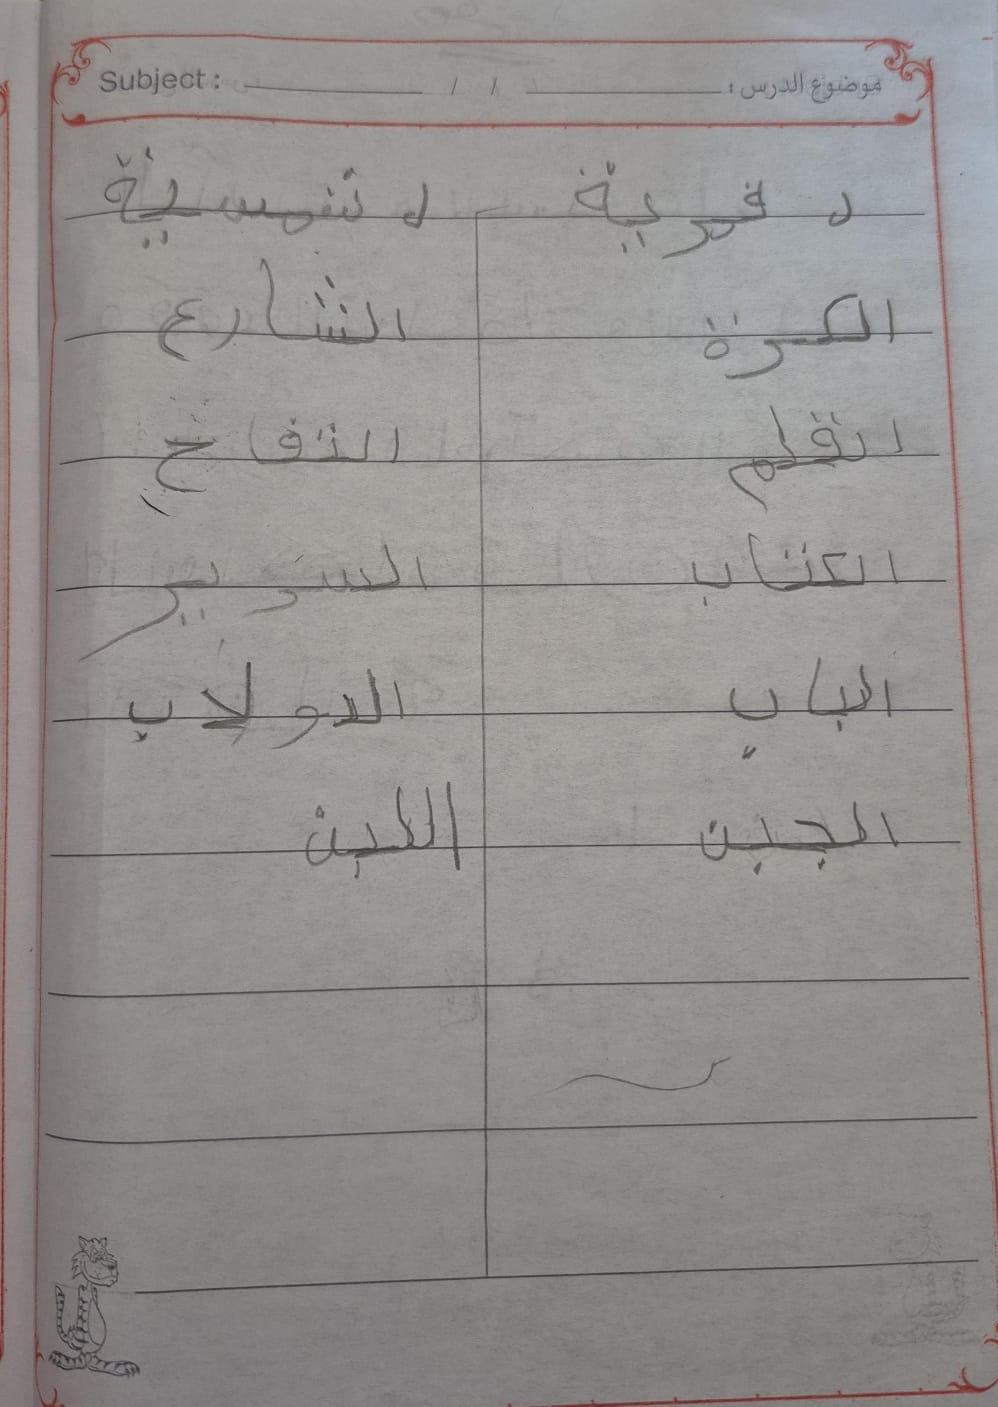 موضوع الدرس : / / Subject :
ل قمرية ل شمسية
الكرة الشارع
القلم التفاح
الكتاب السرير
الباب الدولاب
الجبن اللبن